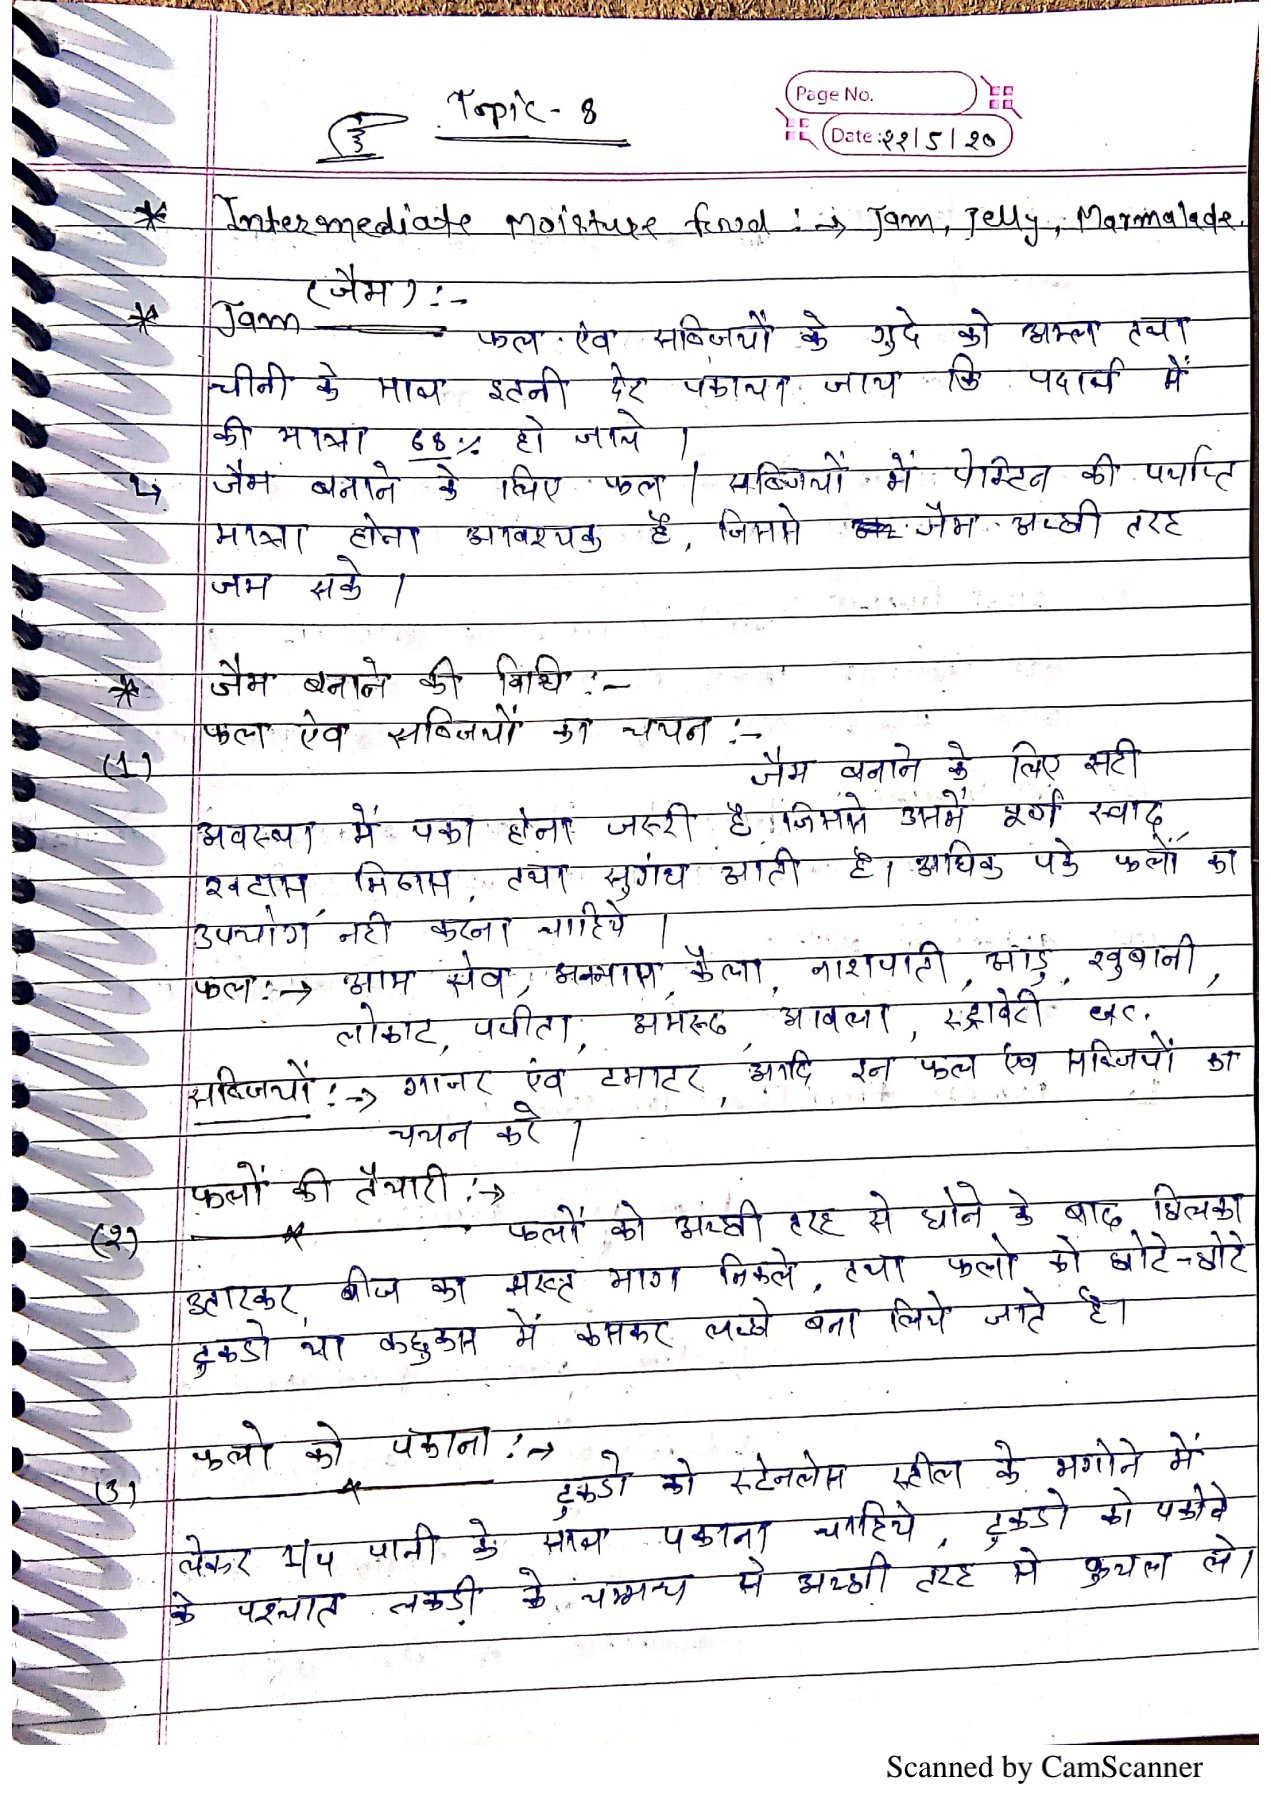 Topic - 8
Page No.
Date: २२/5/२०
* Intermediate Moisture food :→ Jam, Jelly, Marmalade.
* Jam (जैम) :-
फल एंव सब्जियों के गुदे को अम्ल तथा
चीनी के साथ इतनी देर पकाया जाय कि पदार्थ में
की मात्रा 68% हो जाये ।
↳ जैम बनाने के लिए फल / सब्जियों में पेक्टिन की पर्याप्त
मात्रा होना आवश्यक है, जिससे जैम अच्छी तरह
जम सके ।
* जैम बनाने की विधि :-
फल ऐंव सब्जियों का चयन :-
(1) जैम बनाने के लिए सटी
अवस्था में पका होना जरूरी है जिससे उसमें पूर्ण स्वाद,
खटास, मिठास, तथा सुगंध आती है। अधिक पके फलों का
उपयोग नही करना चाहिये ।
फल :→ आम सेव, अनन्नास, कैला, नाशपाती, आडु, खुबानी,
लोकाट, पपीता, अमरूद, आवला, स्ट्रावेरी etc.
सब्जियों :→ गाजर एंव टमाटर, आदि इन फल एंव सब्जियों का
चयन करे ।
फलों की तैयारी :→
(२) फलों को अच्छी तरह से धोने के बाद छिलका
उतारकर, बीज का सख्त भाग निकले, तथा फलो को छोटे-छोटे
टुकडो या कद्दुकस में कसकर लच्छे बना लिये जाते है।
फलो को पकाना :→
(3) टुकडो को स्टेनलेस स्टील के भगोने में
लेकर 1/4 पानी के साथ पकाना चाहिये, टुकडो को पकोवे
के पश्चात लकडी के चम्मच से अच्छी तरह से कुचल ले।
Scanned by CamScanner